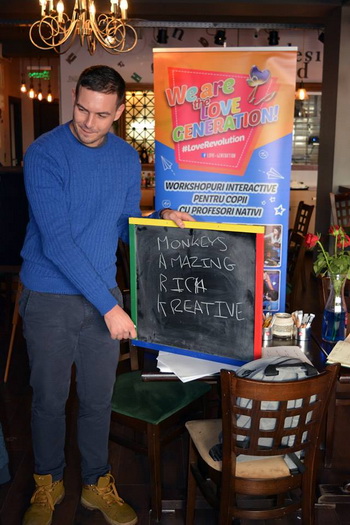 We are
the
LOVE
GENERATION!
#LoveRevolution
WORKSHOPURI INTERACTIVE
PENTRU COPII
CU PROFESORI NATIVI
MONKEYS
AMAZING
RICH
KREATIVE